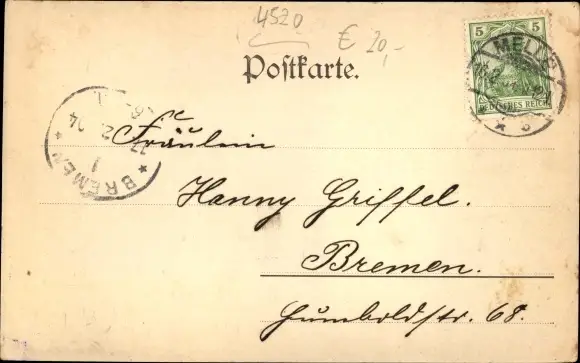 4520
€ 20,-
5 5
MELLE
DEUTSCHES REICH
Postkarte.
BREMEN
Fräulein
Hanny Griffel.
Bremen.
Humboldstr. 68.